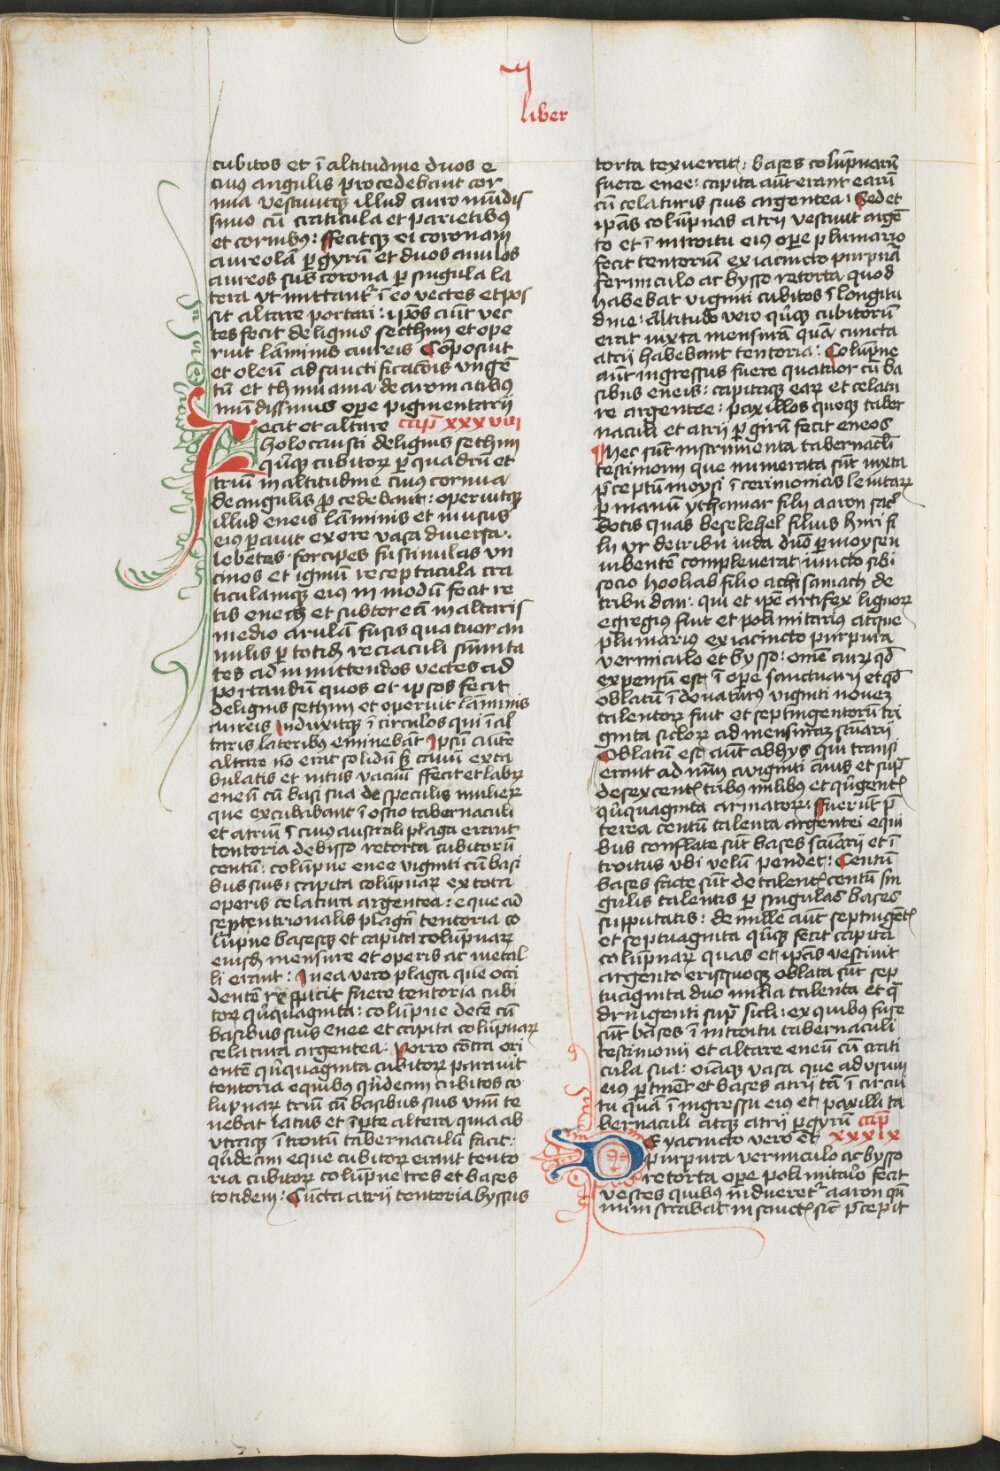 liber
cubitos et ī altitudine duos e
cuius angulis procedebant cor
nua vestivitqꝫ illud auro mūdis
simo cū craticula et parietibus
et cornibus: ffecitqꝫ ei coronam
aureolam ꝑ gyrum et duos anulos
aureos sub corona ꝑ singula la
tera ut mittantᷣ ī eo vectes et pos
sit altare portari: ipos aūt vec
tes fecit de lignis setthim et ope
ruit lāminis aureis Cōposuit
et oleū ad sanctificacōis vngē
tū et thimiama de aromatibus
mūdissimis ope pigmentarii
Fecit et altare cap̄ xxxviii
holocausti de lignis sethim
qūqꝫ cubitoꝝ ꝑ quadrū et
triū in altitudine cuius cornua
de angulis ꝓcedebant: operuitqꝫ
illud eneis lāminis et in usus
eius ꝑavit ex ere vasa diversa.
lebetes forcipes fuscinulas vn
cinos et igniū receptacula cra
ticulamqꝫ eius in modū fecit re
tis eneā et subter eā in altaris
medio arulā fusis quatuor an
nulis ꝑ totidē reciaculi sūmita
tes ad inmittendos vectes ad
portandū quos et ipsos fecit
de lignis sethim et operuit lāminis
aureis Induxitqꝫ ī circulos qui ī al
taris lateribus eminebāt Ipsū autē
altare nō erat solidū sꝫ cavū ex ta
bulatis et intus vacuū ffecit et labrū
eneū cū basi sua de speculis mulieꝝ
que excubabant ī ostio tabernaculi
et atriū ī cuius australi plaga erant
tentoria de bisso retorta cubitorū
centū: colūpne enee viginti cū basi
bus suis: capita colūpnaꝝ ex tota
operis celatura argentea: eque ad
septentrionalis plagā tentoria co
lūpne basesqꝫ et capita colūpnaꝝ
eiusdē mensure et operis ac metal
li erant: In ea vero plaga que occi
dentē respicit fuere tentoria cubi
toꝝ qūquaginta: colūpne decē cū
basibus suis enee et capita colūpnaꝝ
celatura argentea: Porro cōtra ori
entē qūquaginta cubitoꝝ paravit
tentoria e quibus qūdecim cubitos co
lupnaꝝ triū cū basibus suis vnū te
nebat latus et ī ꝑte altera qua ab
vtraqꝫ ītroitū tabernaculū facit:
qūdecim eque cubitoꝝ erant tento
ria cubitoꝝ colūpne tres et bases
totidem: Cūcta atrii tentoria byssus
torta texuerat: bases colūpnarū
fuere enee: capita aūt erant earū
cū celaturis suis argentea: Sed et
ipās colūpnas atrii vestivit argē
to et ī introitu eius ope plumario
fecit tentoriū ex iacincto purpurā
ferinculo ac bysso retorta quod
habebat viginti cubitos ī longitu
dine: altitudo vero qūqꝫ cubitorū
erat iuxta mensurā quā cuncta
atrii habebant tentoria: Colūpne
aūt ingressus fuere quatuor cū ba
sibus eneis: capitaqꝫ eaꝝ et celatu
re argentee: paxillos quoqꝫ taber
naculi et atrii ꝑ girū fecit eneos
Hec sūt instrumenta tabernacl̄i
testimonii que numerata sūt iuxta
p̄ceptū moysi ī cerimoniis levitaꝝ
ꝑ manū ythamar filii aaron sac̄
dotis quas beselehel filius huri fi
lii ur de tribu iuda dn̄o ꝑ moysen
iubente compleverat iuncto sibi
socio hooliab filio achisamach de
tribu dan: qui et ip̄e artifex lignoꝝ
egregius fuit et polimitarius atque
plumarius ex iacincto purpura
vermiculo et bysso: omē auꝝ qd̄
expensū est ī ope sanctuarii et qd̄
oblatū ī donariis viginti novē
talentoꝝ fuit et septingentorū tri
ginta siclorꝝ ad mensurā sctuarii
Oblatū est aūt ab hys qui transi
erant ad nm̄ a viginti ānis et supᷓ
de sexcentꝭ tribus milibus et qūgentꝭ
qūquaginta armatoꝝ: Fuerūt p̄
terea centū talenta argentei e qui
bus conflate sūt bases sctuarii et ī
troitus ubi velū pendet: Centū
bases facte sūt de talentꝭ centū sin
gulis talentis ꝑ singulas bases
supputatis: de mille aūt septingētꝭ
et septuaginta qūqꝫ fecit capita
colūpnaꝝ quas et ipās vestivit
argento erisquoqꝫ oblata sūt sep
tuaginta duo milia talenta et qᷓ
dringenti supᷓ sicli: ex quibus fuse
sūt bases ī introitu tabernaculi
testimonii et altare eneū cū crati
cula sua: oīaqꝫ vasa que ad usum
eius ꝑtinēt et bases atrii tā ī circui
tu quā ī ingressu eius et paxilli ta
bernaculi atqꝫ atrii ꝑ gyrū cap̄
De yacincto vero et xxxix
purpura vermiculo ac bysso
retorta ope polimitario fecit
vestes quibus indueretᷣ aaron qn̄
ministrabat in sanctꝭ sic̄ p̄cepit